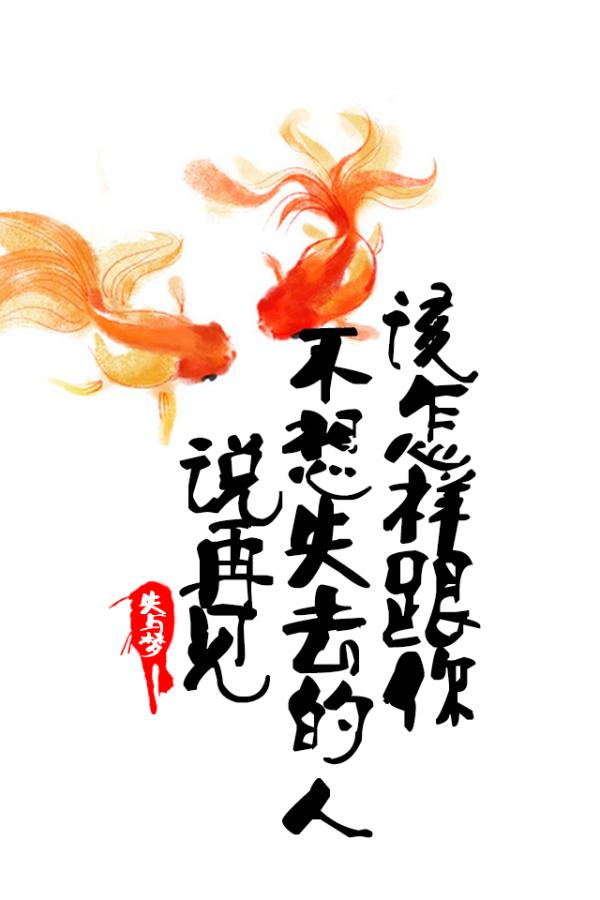 该怎样跟你
不想失去的人
说再见
失与梦